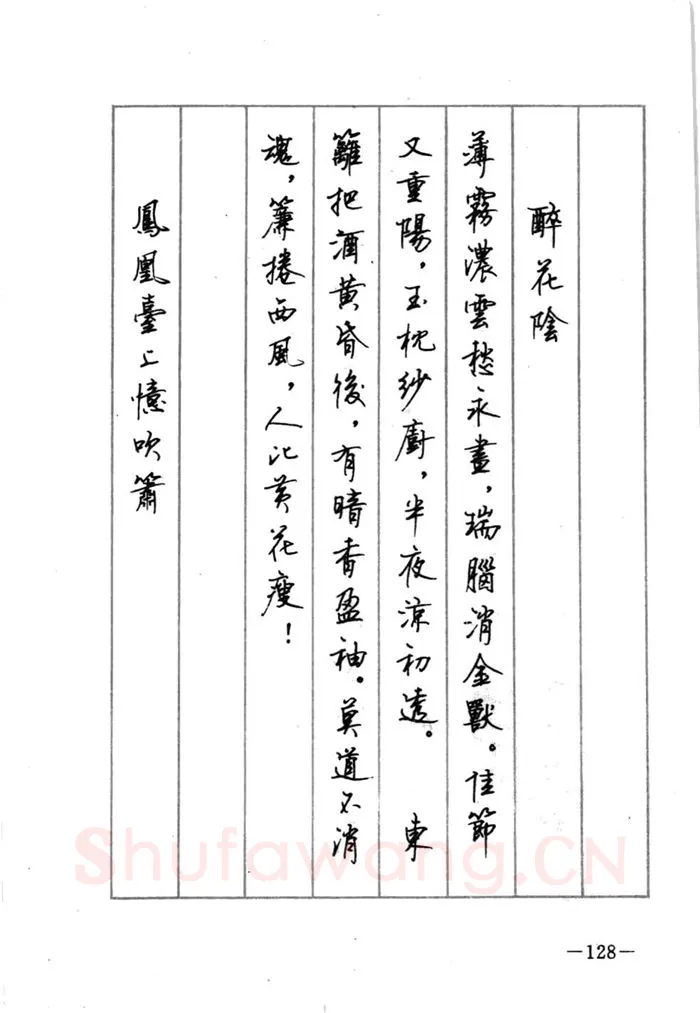 醉花陰
薄霧濃雲愁永晝，瑞腦消金獸。佳節
又重陽，玉枕紗廚，半夜涼初透。 東
籬把酒黃昏後，有暗香盈袖。莫道不消
魂，簾捲西風，人比黃花瘦！
鳳凰臺上憶吹簫
Shufawang.CN
—128—